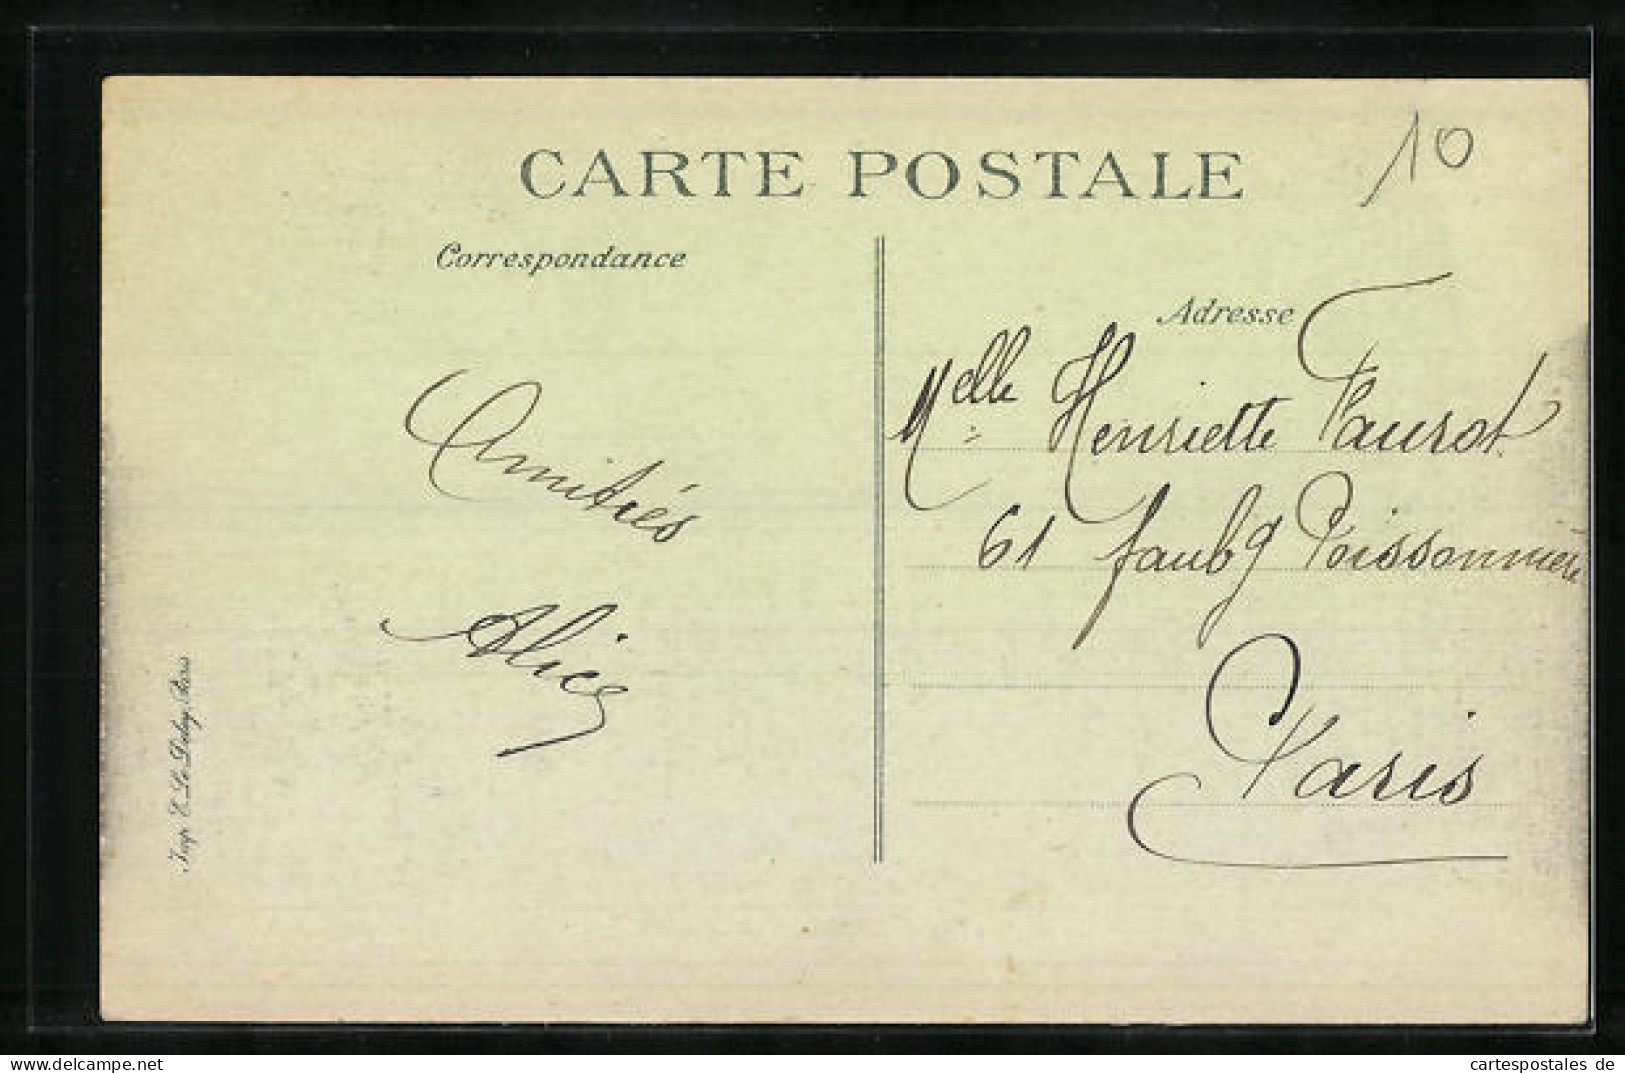 10
CARTE POSTALE
Correspondance
Adresse
Amitiés
Alice
Melle Henriette Faurot
61 faubg Poissonnière
Paris
Imp. E. Le Deley, Paris
delcampe.net
cartespostales de